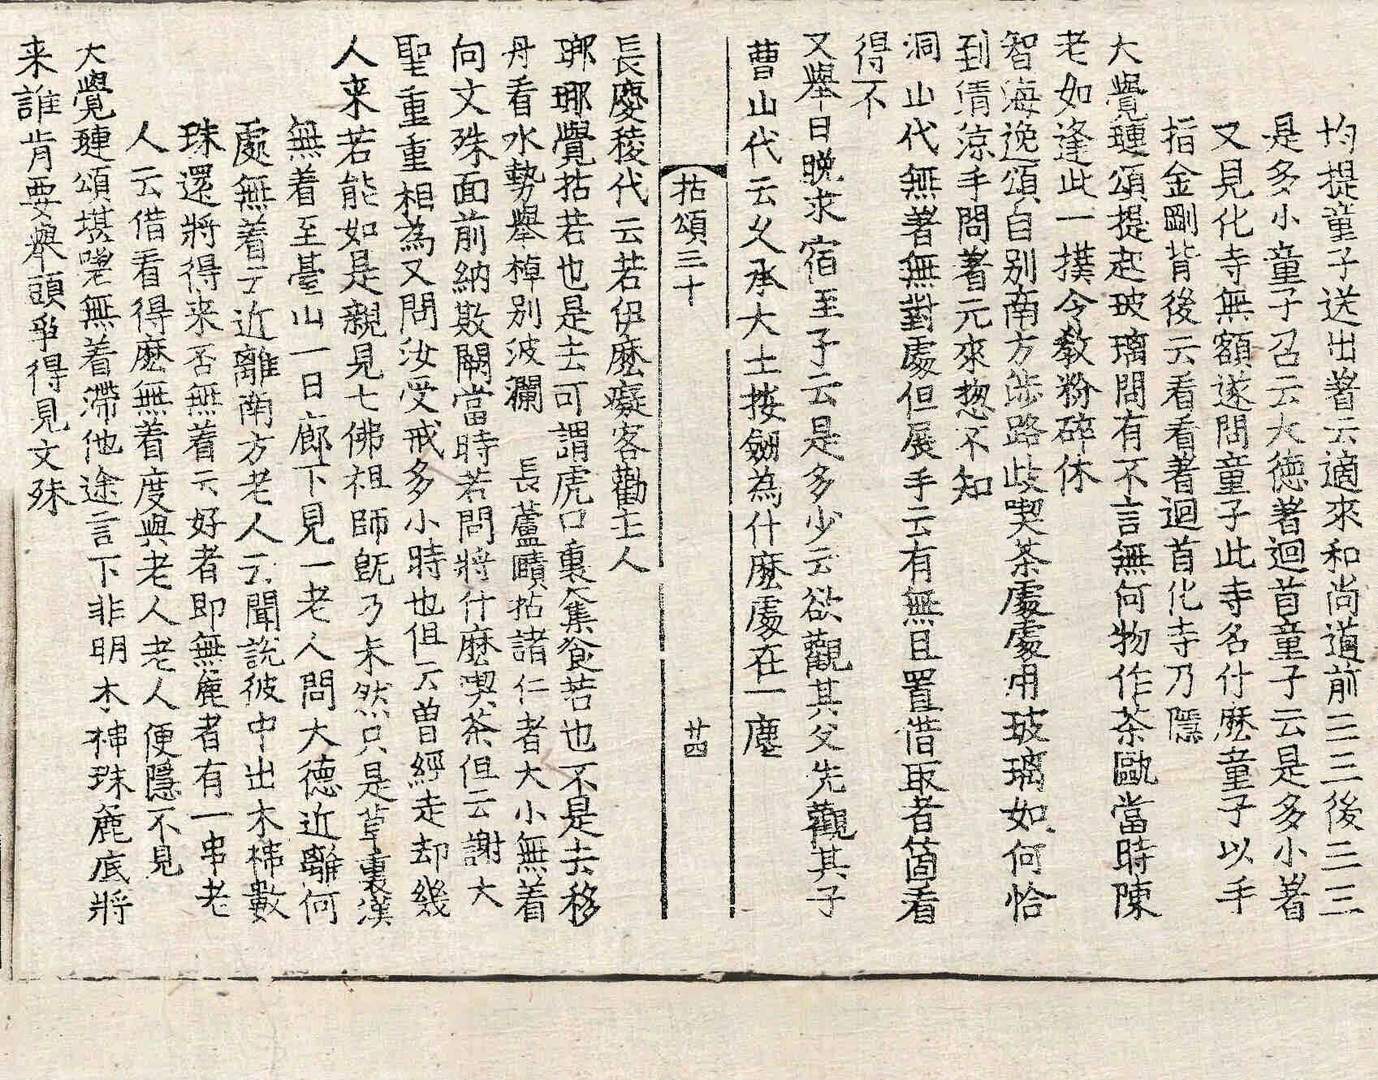 均提童子送出著云適來和尚道前三三後三三
是多小童子召云大德著迴首童子云是多小著
又見化寺無額遂問童子此寺名什麽童子以手
指金剛背後云看看著迴首化寺乃隱
大覺璉頌提起玻璃問有不言無何物作茶甌當時陳
老如逢此一撲令教粉碎休
智海逸頌自别南方涉路歧喫茶處處用玻璃如何恰
到清涼手問著元來惣不知
洞山代無著無對處但展手云有無且置借取者箇看
得不
又舉日晚求宿至子云是多少云欲觀其父先觀其子
曹山代云久承大士按劒為什麽處在一塵
拈頌三十 廿四
長慶稜代云若伊麽癡客勸主人
瑯琊覺拈若也是去可謂虎口裏奪食若也不是去移
舟看水勢舉棹别波瀾 長蘆賾拈諸仁者大小無着
向文殊面前納敗闕當時若問將什麽喫茶但云謝大
聖重重相為又問汝受戒多小時也但云曽經走却幾
人来若能如是親見七佛祖師旣乃未然只是草裏漢
無着至臺山一日廊下見一老人問大德近離何
處無着云近離南方老人云聞說彼中出木槵數
珠還將得来否無着云好者即無麁者有一串老
人云借看得麽無着度與老人老人便隱不見
大覺璉頌堪嗟無着滯他途言下非明木槵珠麁底將
来誰肯要舉頭爭得見文殊